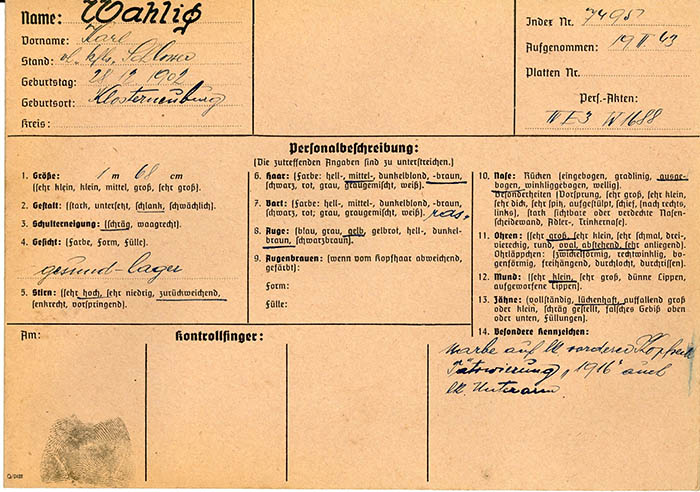 Name: Wahlig
Vorname: Karl
Stand: vl. kfm. Schlosser
Geburtstag: 28 12 1902
Geburtsort: Klosterneuburg
Kreis:
Index Nr. 7495
Aufgenommen: 19 II. 43
Platten Nr.
Pers.-Akten:
IV E 3 IV 1688
Personalbeschreibung:
(Die zutreffenden Angaben sind zu unterstreichen.)
1. Größe: 1 m 68 cm
(sehr klein, klein, mittel, groß, sehr groß).
2. Gestalt: (stark, untersetzt, schlank, schwächlich).
3. Schulterneigung: (schräg, waagrecht).
4. Gesicht: (Farbe, Form, Fülle).
gesund-lager
5. Stirn: (sehr hoch, sehr niedrig, zurückweichend,
senkrecht, vorspringend).
6. Haar: (Farbe: hell-, mittel-, dunkelblond, -braun,
schwarz, rot, grau, graugemischt, weiß).
7. Bart: (Farbe: hell-, mittel-, dunkelblond, -braun,
schwarz, rot, grau, graugemischt, weiß). ras.
8. Auge: (blau, grau, gelb, gelbrot, hell-, dunkel-
braun, schwarzbraun).
9. Augenbrauen: (wenn vom Kopfhaar abweichend,
gefärbt):
Form:
Fülle:
10. Nase: Rücken (eingebogen, gradlinig, ausge-
bogen, winkliggebogen, wellig).
Besonderheiten (Vorsprung, sehr groß, sehr klein,
sehr dick, sehr spitz, aufgestülpt, schief, (nach rechts,
links), stark sichtbare oder verdeckte Nasen-
scheidewand, Adler-, Trinkernase).
11. Ohren: (sehr groß, sehr klein, sehr schmal, drei-,
viereckig, rund, oval, abstehend, sehr anliegend).
Ohrläppchen: (zwickelförmig, rechtwinklig, bo-
genförmig, freihängend, durchlocht, durchrissen).
12. Mund: (sehr klein, sehr groß, dünne Lippen,
aufgeworfene Lippen).
13. Zähne: (vollständig, lückenhaft, auffallend groß
oder klein, schräg gestellt, falsches Gebiß oben
oder unten, Füllungen).
14. Besondere Kennzeichen:
Narbe auf lk vorderen
Tätowierung „1916" auch
lk. Unterarm
Am:
Kontrollfinger: